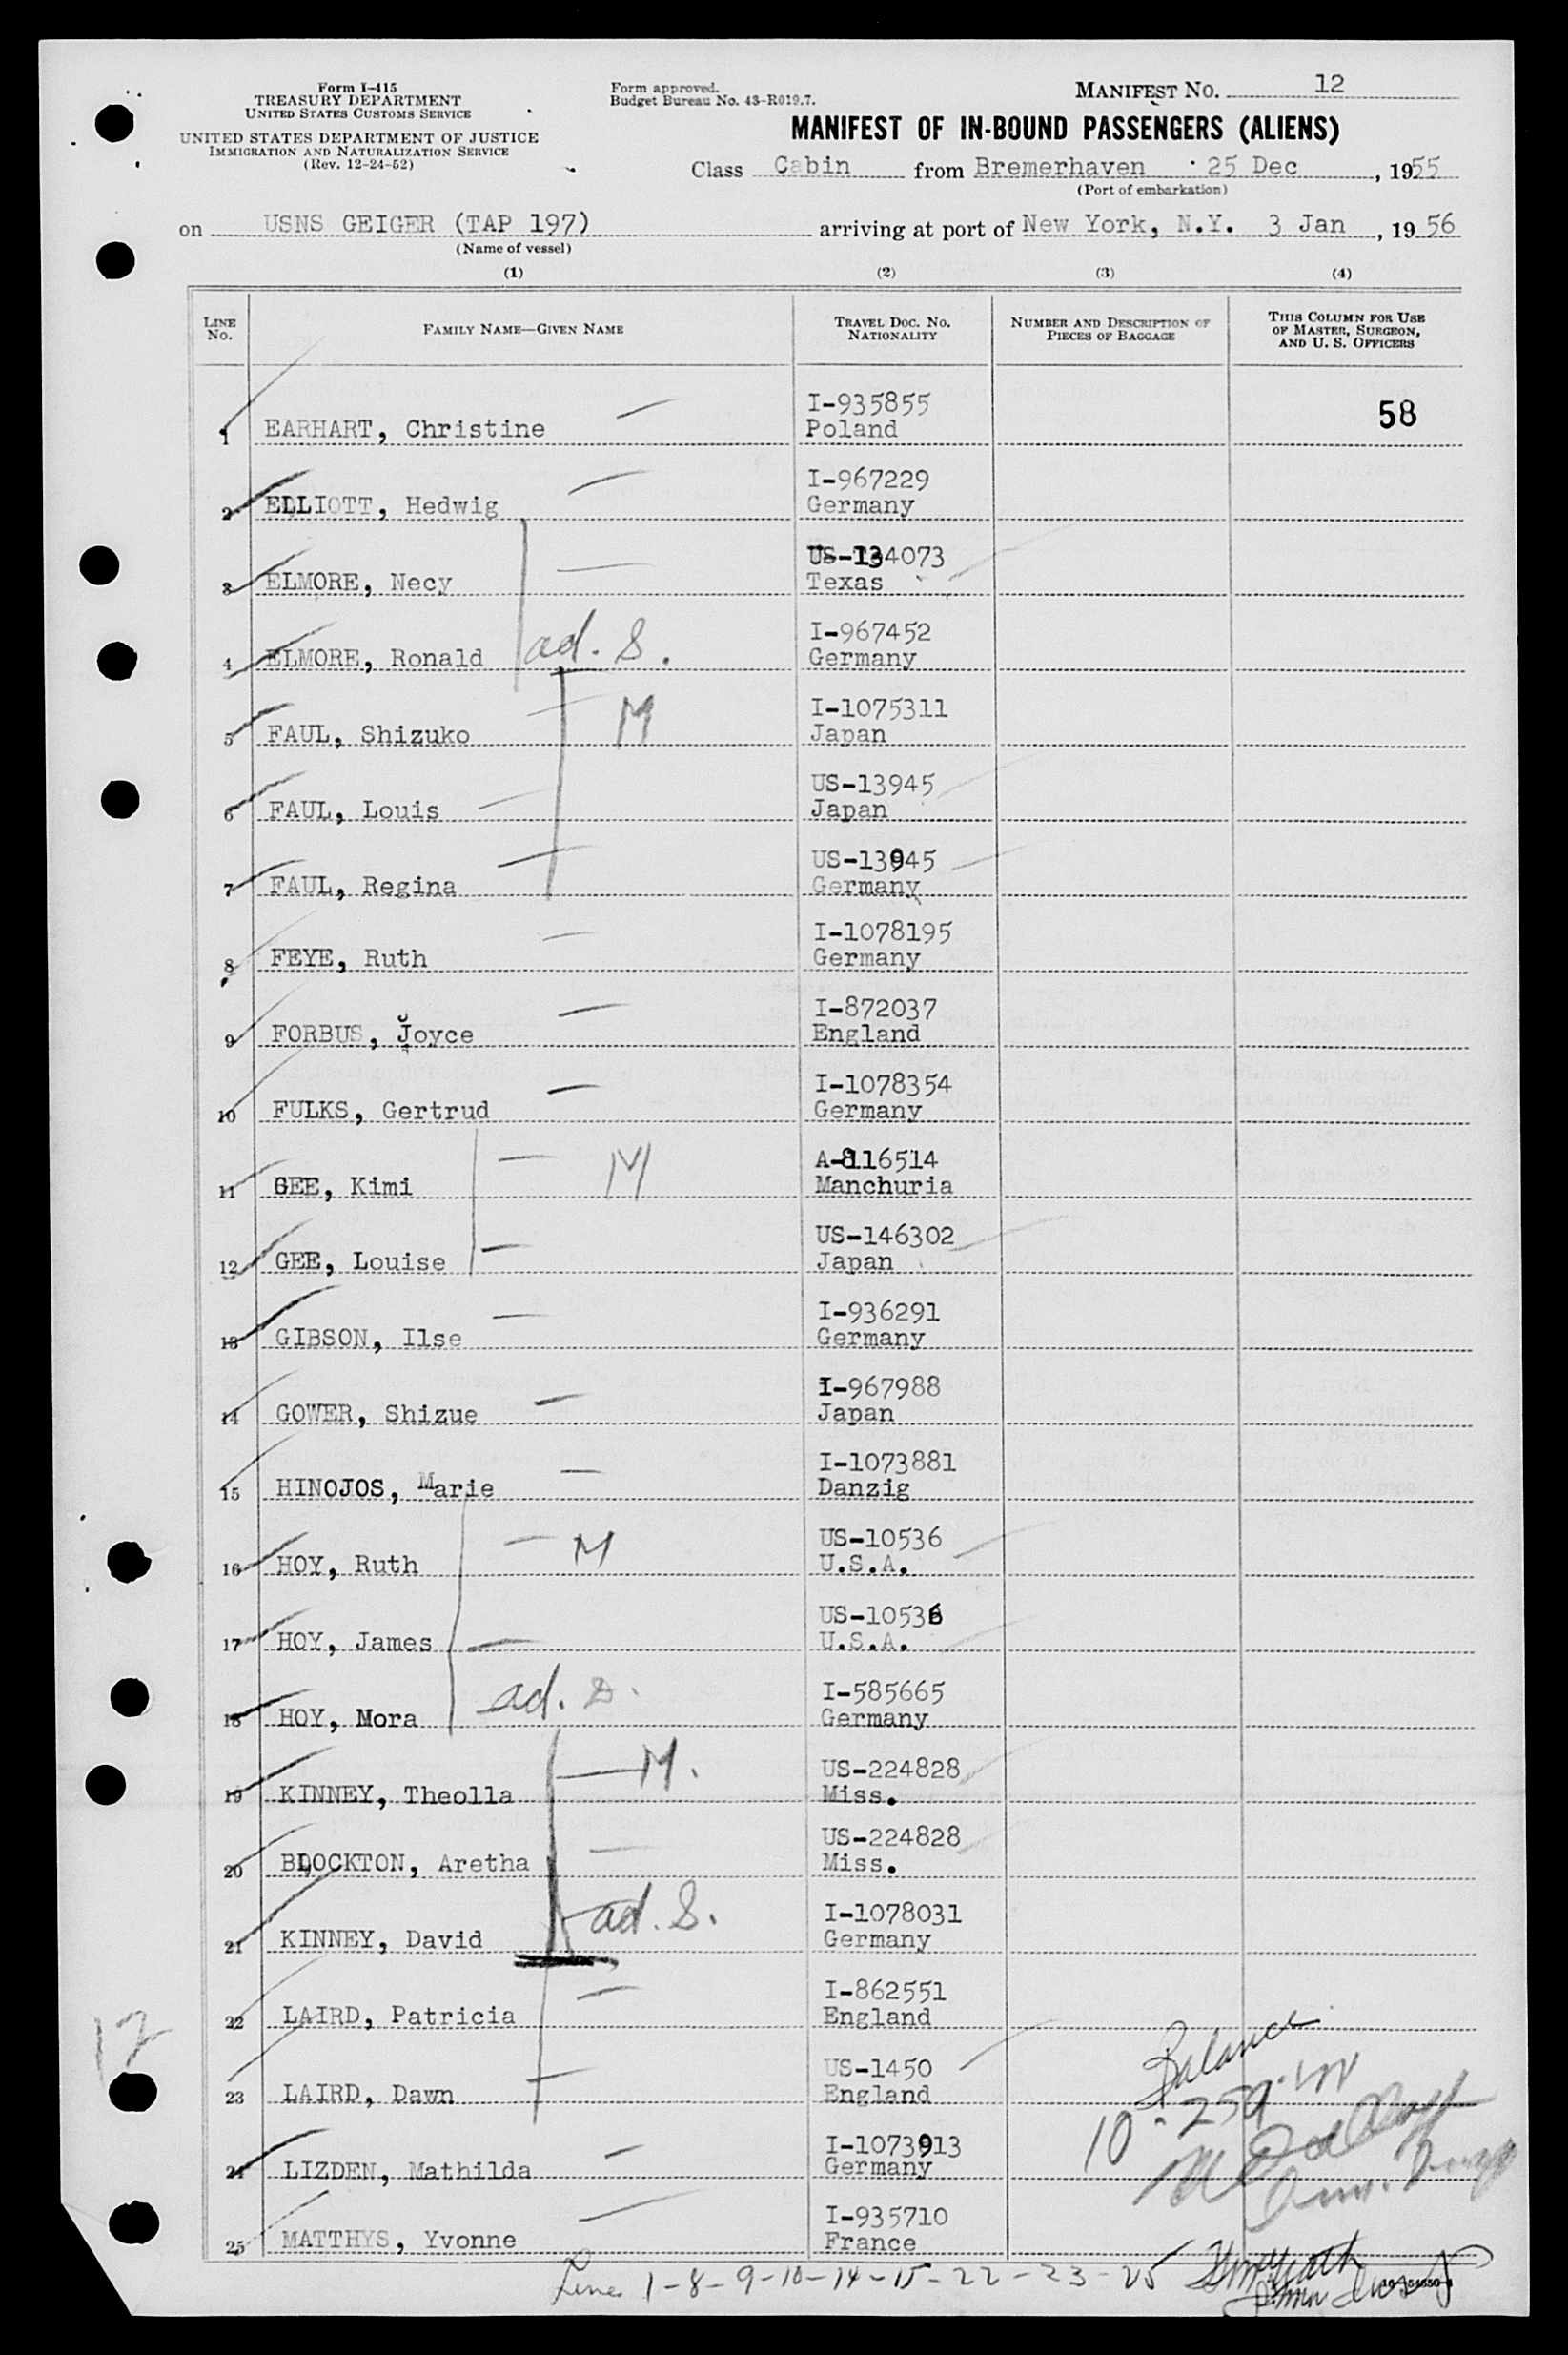 Form I-415
TREASURY DEPARTMENT
UNITED STATES CUSTOMS SERVICE
UNITED STATES DEPARTMENT OF JUSTICE
IMMIGRATION AND NATURALIZATION SERVICE
(Rev. 12-24-52)
Form approved.
Budget Bureau No. 43-R019.7.
MANIFEST NO. 12
MANIFEST OF IN-BOUND PASSENGERS (ALIENS)
Class Cabin from Bremerhaven 25 Dec, 1955
(Port of embarkation)
on USNS GEIGER (TAP 197) arriving at port of New York, N.Y. 3 Jan, 1956
(Name of vessel)
(1) (2) (3) (4)
LINE NO. FAMILY NAME—GIVEN NAME TRAVEL DOC. NO. NATIONALITY NUMBER AND DESCRIPTION OF PIECES OF BAGGAGE THIS COLUMN FOR USE OF MASTER, SURGEON, AND U. S. OFFICERS
I-935855 58
1 EARHART, Christine Poland
I-967229
2 ELLIOTT, Hedwig Germany
US-134073
3 ELMORE, Necy Texas
I-967452
4 ELMORE, Ronald ad. S. Germany
I-1075311
5 FAUL, Shizuko M Japan
US-13945
6 FAUL, Louis Japan
US-13945
7 FAUL, Regina Germany
I-1078195
8 FEYE, Ruth Germany
I-872037
9 FORBUS, Joyce England
I-1078354
10 FULKS, Gertrud Germany
A-8116514
11 GEE, Kimi M Manchuria
US-146302
12 GEE, Louise Japan
I-936291
13 GIBSON, Ilse Germany
I-967988
14 GOWER, Shizue Japan
I-1073881
15 HINOJOS, Marie Danzig
US-10536
16 HOY, Ruth M U.S.A.
US-10536
17 HOY, James U.S.A.
I-585665
18 HOY, Mora ad. Germany
US-224828
19 KINNEY, Theolla M. Miss.
US-224828
20 BLOCKTON, Aretha Miss.
I-1078031
21 KINNEY, David ad. S. Germany
I-862551
22 LAIRD, Patricia England
12
Balance
US-1450
23 LAIRD, Dawn England
10 - 259
I-1073913
24 LIZDEN, Mathilda Germany
I-935710
25 MATTHYS, Yvonne France
Line 1-8-9-10-14-15-22-23-25